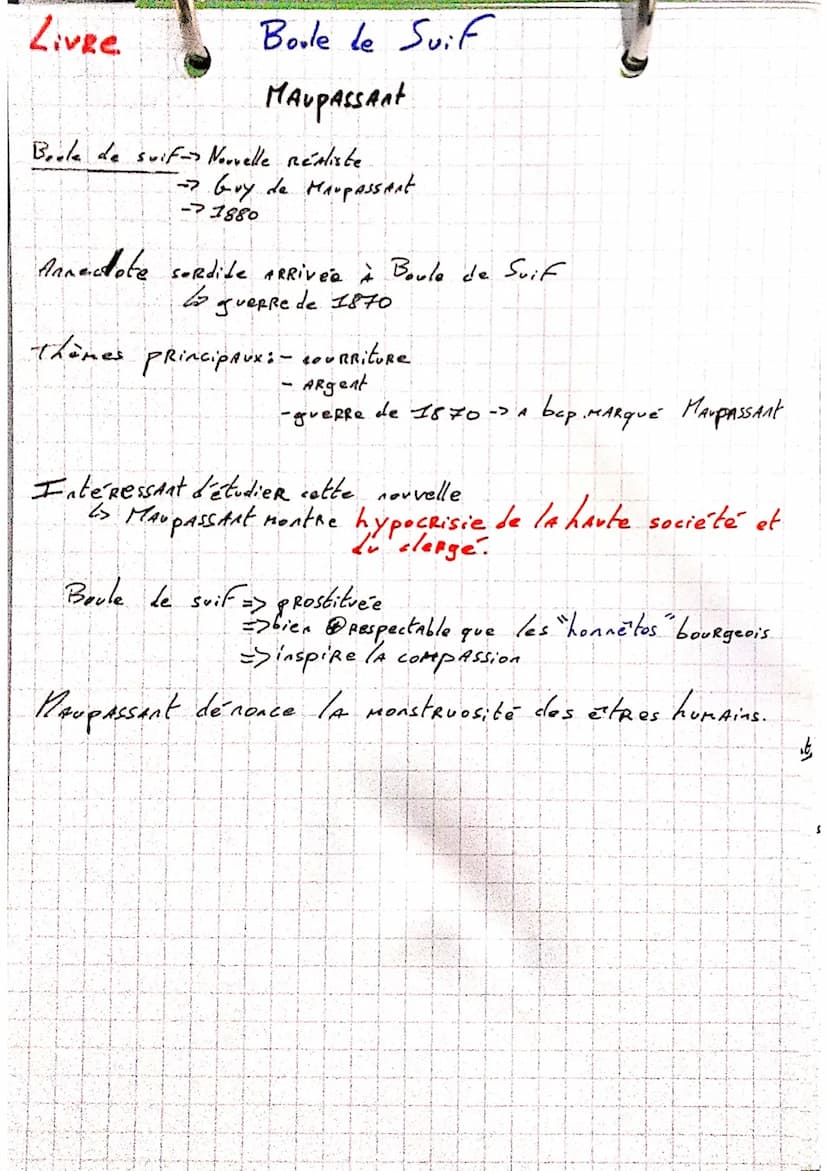 Livre Boule de Suif
Maupassant
Boule de suif -> Nouvelle réaliste
-> Guy de Maupassant
-> 1880
Annecdote sordide arrivée à Boule de Suif
↳ guerre de 1870
Thèmes principaux: - nourriture
- Argent
- guerre de 1870 -> a bcp. marqué Maupassant
Intéressant d'étudier cette nouvelle
↳ Maupassant montre hypocrisie de la haute société et
du clergé.
Boule de suif => prostituée
=> bien ⊕ respectable que les "honnêtes" bourgeois
=> inspire la compassion
Maupassant dénonce la monstruosité des êtres humains.